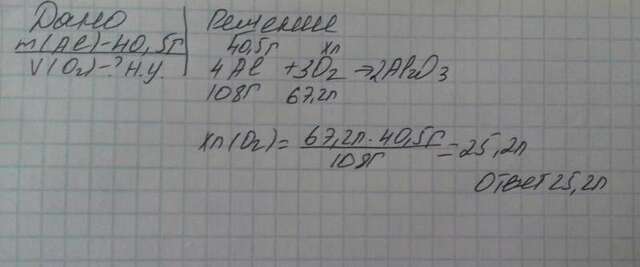 Дано
m(Al)-40,5г
V(O₂)-? н.у.
Решение
40,5г хл
4Al + 3O₂ → 2Al₂O₃
108г 67,2л
хл(O₂) = 67,2л · 40,5г / 108г = 25,2л
Ответ 25,2л